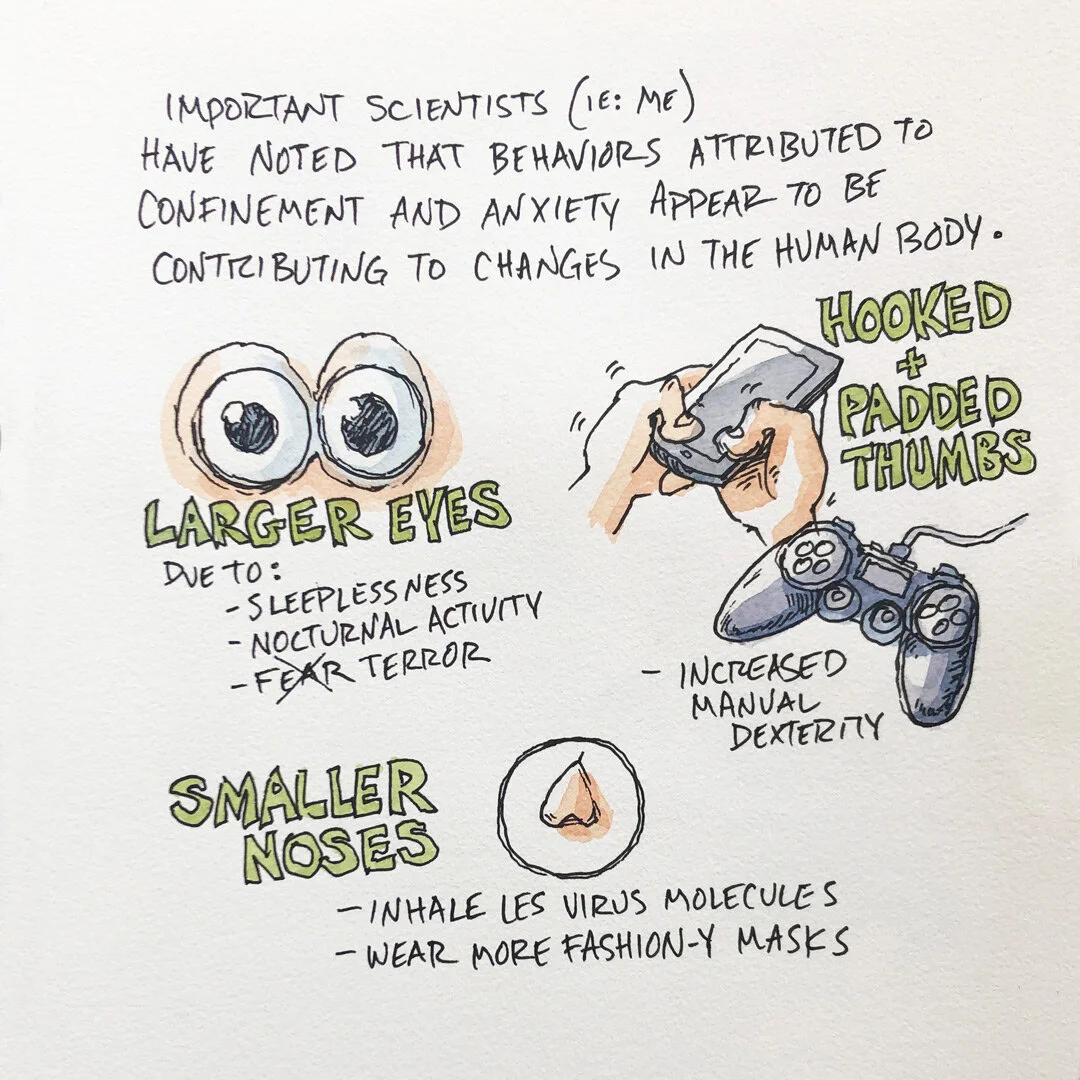 IMPORTANT SCIENTISTS (IE: ME)
HAVE NOTED THAT BEHAVIORS ATTRIBUTED TO
CONFINEMENT AND ANXIETY APPEAR TO BE
CONTRIBUTING TO CHANGES IN THE HUMAN BODY.
LARGER EYES
DUE TO:
- SLEEPLESSNESS
- NOCTURNAL ACTIVITY
- FEAR TERROR
HOOKED
+
PADDED
THUMBS
- INCREASED
MANUAL
DEXTERITY
SMALLER
NOSES
- INHALE LES VIRUS MOLECULES
- WEAR MORE FASHION-Y MASKS